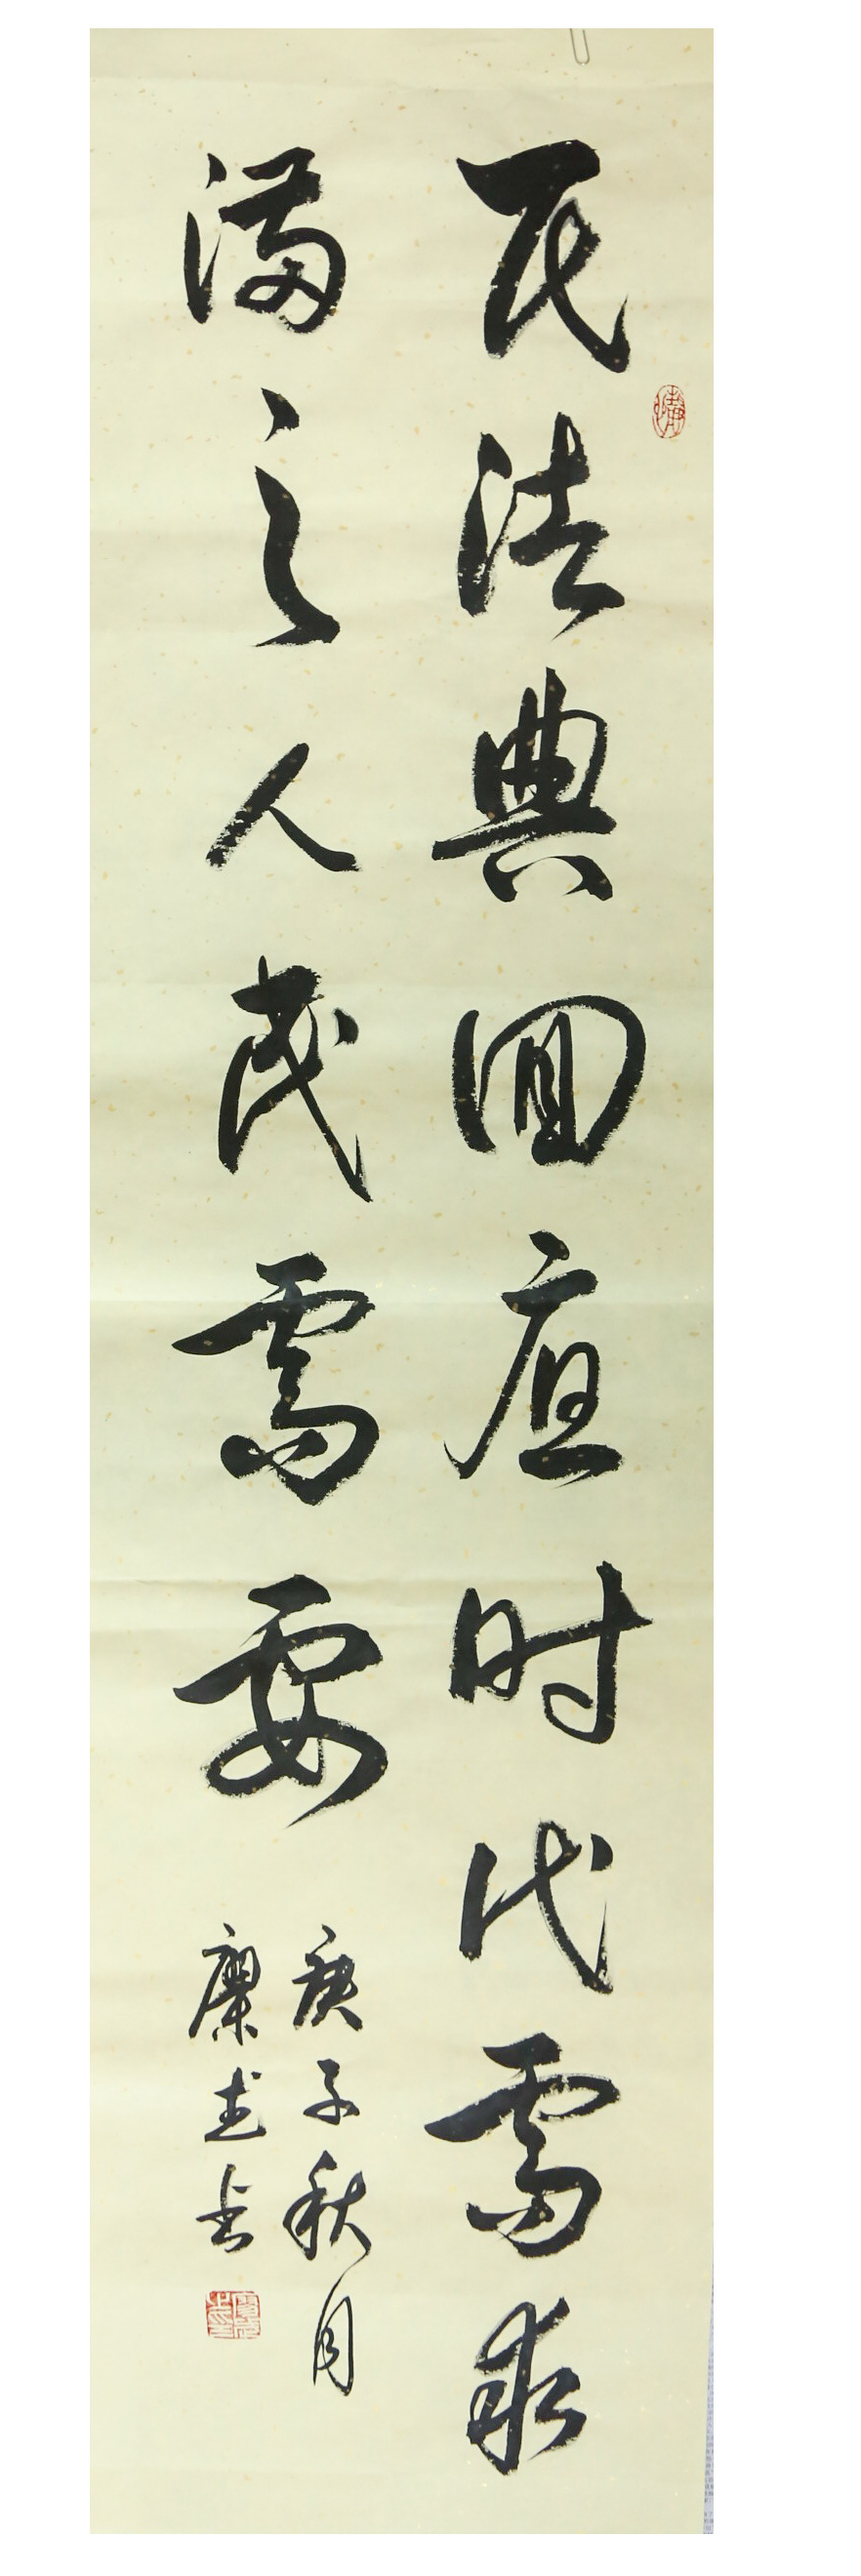 民法典回应时代需求
满之人民需要
庚子秋月
廖志